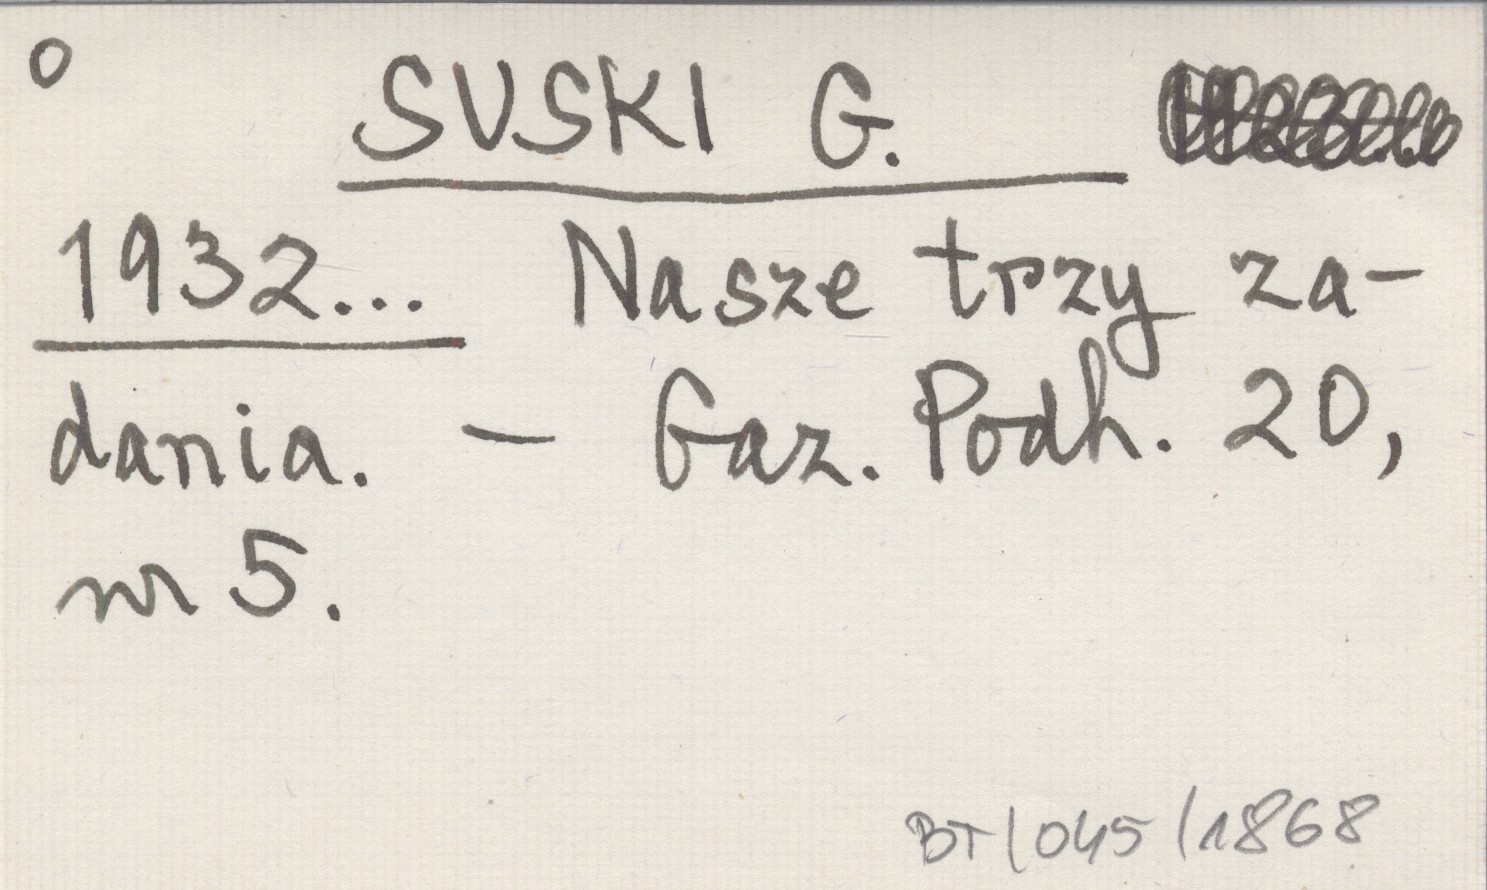 o
SUSKI G.
1932... Nasze trzy za-
dania. – Gaz. Podh. 20,
nr 5.
BT/045/1868